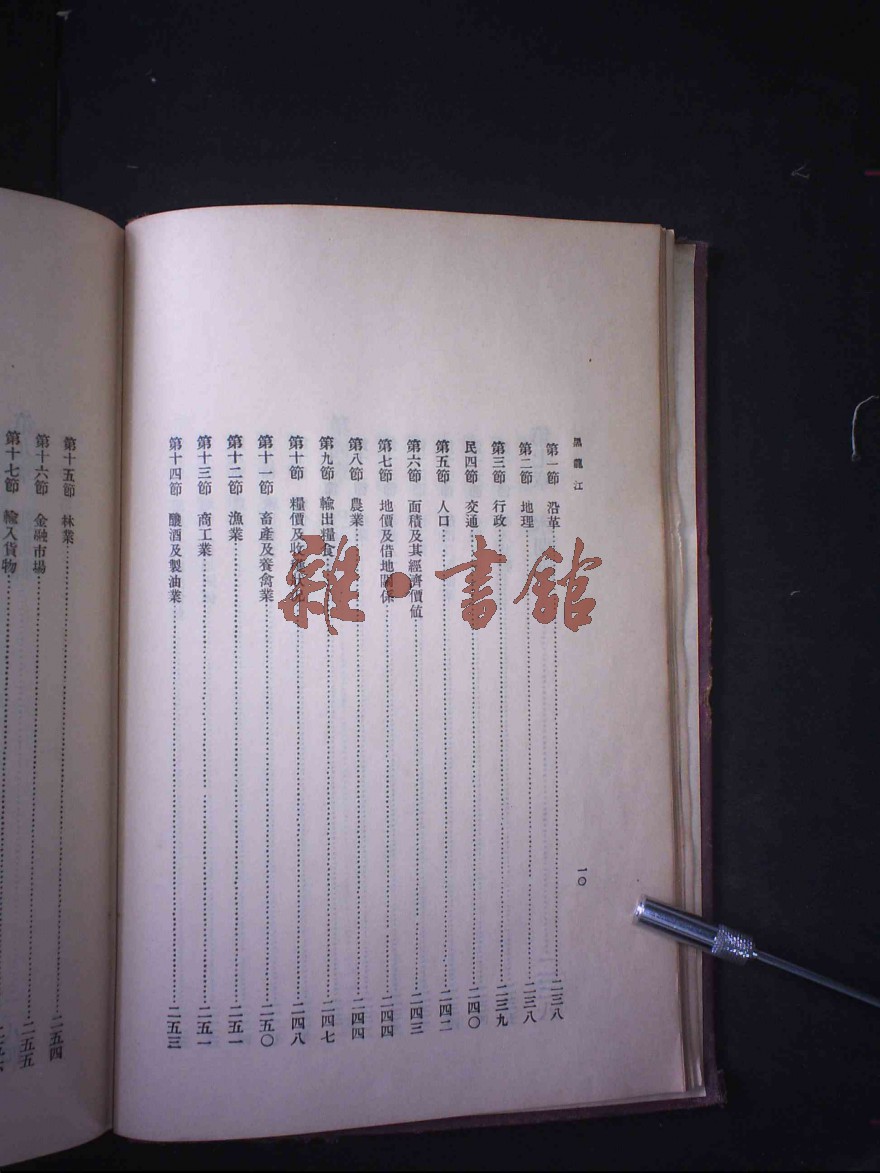 黑龍江
一〇
第一節 沿革 二三八
第二節 地理 二三八
第三節 行政 二三九
民四節 交通 二四〇
第五節 人口 二四二
第六節 面積及其經濟價值 二四三
第七節 地價及借地關係 二四四
第八節 農業 二四四
第九節 輸出糧食 二四七
第十節 糧價及收穫狀况 二四八
第十一節 畜產及養禽業 二五〇
第十二節 漁業 二五一
第十三節 商工業 二五一
第十四節 釀酒及製油業 二五三
第十五節 林業 二五四
第十六節 金融市場 二五五
第十七節 輸入貨物
雜·書館